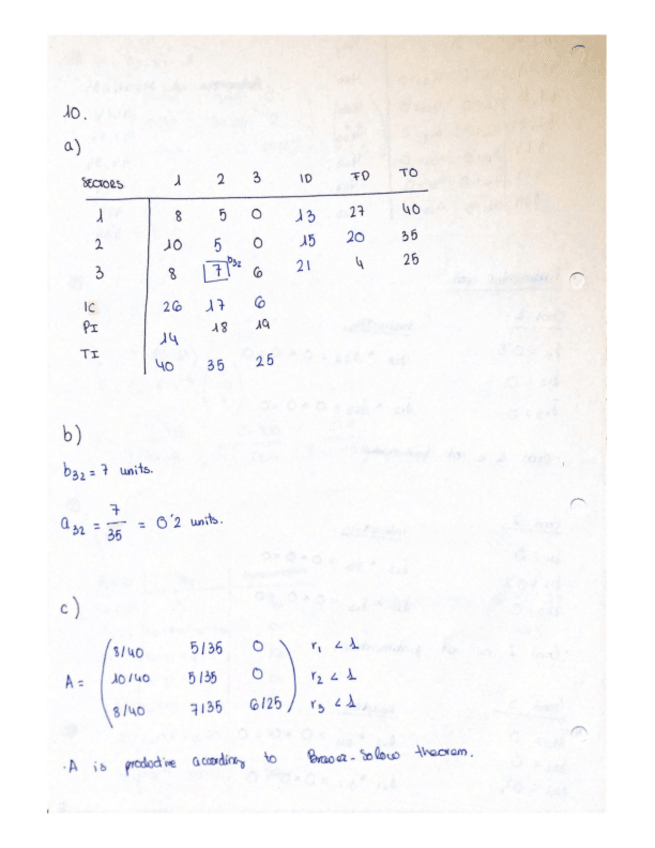 10.
a)
SECTORS 1 2 3 ID FD TO
1 8 5 0 13 27 40
2 10 5 0 15 20 35
3 8 7 b32 6 21 4 25
IC 26 17 6
PI 14 18 19
TI 40 35 25
b)
b32 = 7 units.
a32 = 7/35 = 0'2 units.
c)
A = ( 8/40 5/35 0 ) r1 < 1
10/40 5/35 0 r2 < 1
8/40 7/35 6/25 r3 < 1
·A is productive according to Brauer-Solow theorem.